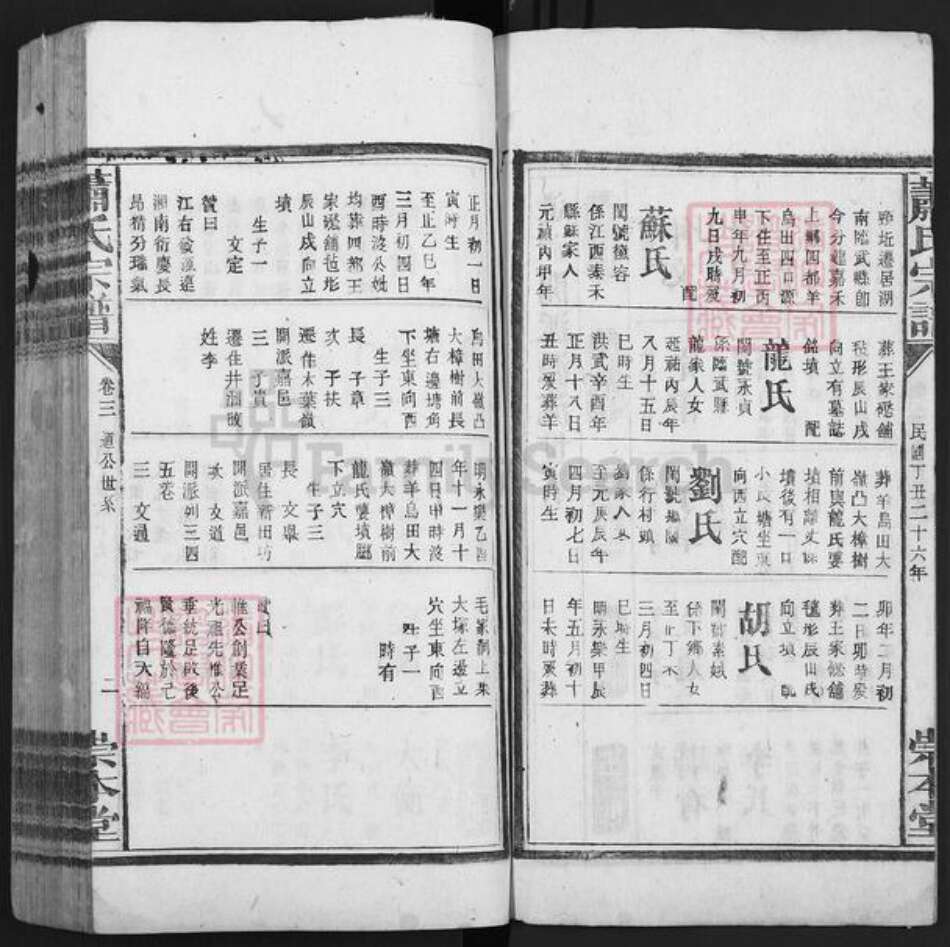 蕭氏宗譜
民國丁丑二十六年
崇本堂
坵遷居湖
南臨武縣即
今分建嘉禾
上鄉四都羊
烏出四口源
下住至正丙
申年九月初
九日戌時歿
配
蘇氏
閨號德容
係江西泰禾
縣蘇家人
元禎內甲年
葬王家嵅舖
毡形辰山戌
向立有墓誌
銘墳 配
龍氏
閨號永貞
係臨武縣
龍家人女
延祐內辰年
八月十五日
巳時生
洪武辛酉年
正月十八日
丑時歿葬羊
葬羊烏田大
嶺凸大樟樹
前與龍氏要
墳相離丈餘
墳後有一口
小長塘坐東
向西立穴配
劉氏
係行村頭
劉家人女
至元辰年
四月初七日
寅時生
卯年二月初
二日卯時歿
葬王家嵅舖
毬形辰山戌
向立墳
胡氏
閨號素娥
係下鄉人女
至正丁未
三月初四日
巳時生
明永樂甲辰
年五月初十
日未時歿葬
正月初一日
寅時生
至正乙巳年
三月初四日
酉時歿公妣
均葬四都王
家嵅舖毡形
辰山戌向立
墳
生子一
文定
贊曰
江右發源遠
湖南衍慶長
昂精分瑞氣
烏田大嶺凸
大樟樹前長
塘右邊塘角
下坐東向西
生子三
長 子章
次 子扶
遷住木葉嶺
開派嘉邑
三 子貴
遷住井洞改
姓李
明永樂乙酉
年十一月十
四日甲時歿
葬羊烏田大
嶺大樟樹前
龍氏要墳腳
下立穴
生子三
長 文舉
居住新田坊
開派嘉邑
次 文道
開派列三四
五卷
三 文通
毛家洞上朱
大塚左邊立
穴坐東向西
生子一
時有
贊曰
惟公創業足
光前先惟公
垂統足啟後
賢德隆於己
福降自大
蕭氏宗譜
卷三
道公世系
二
崇本堂